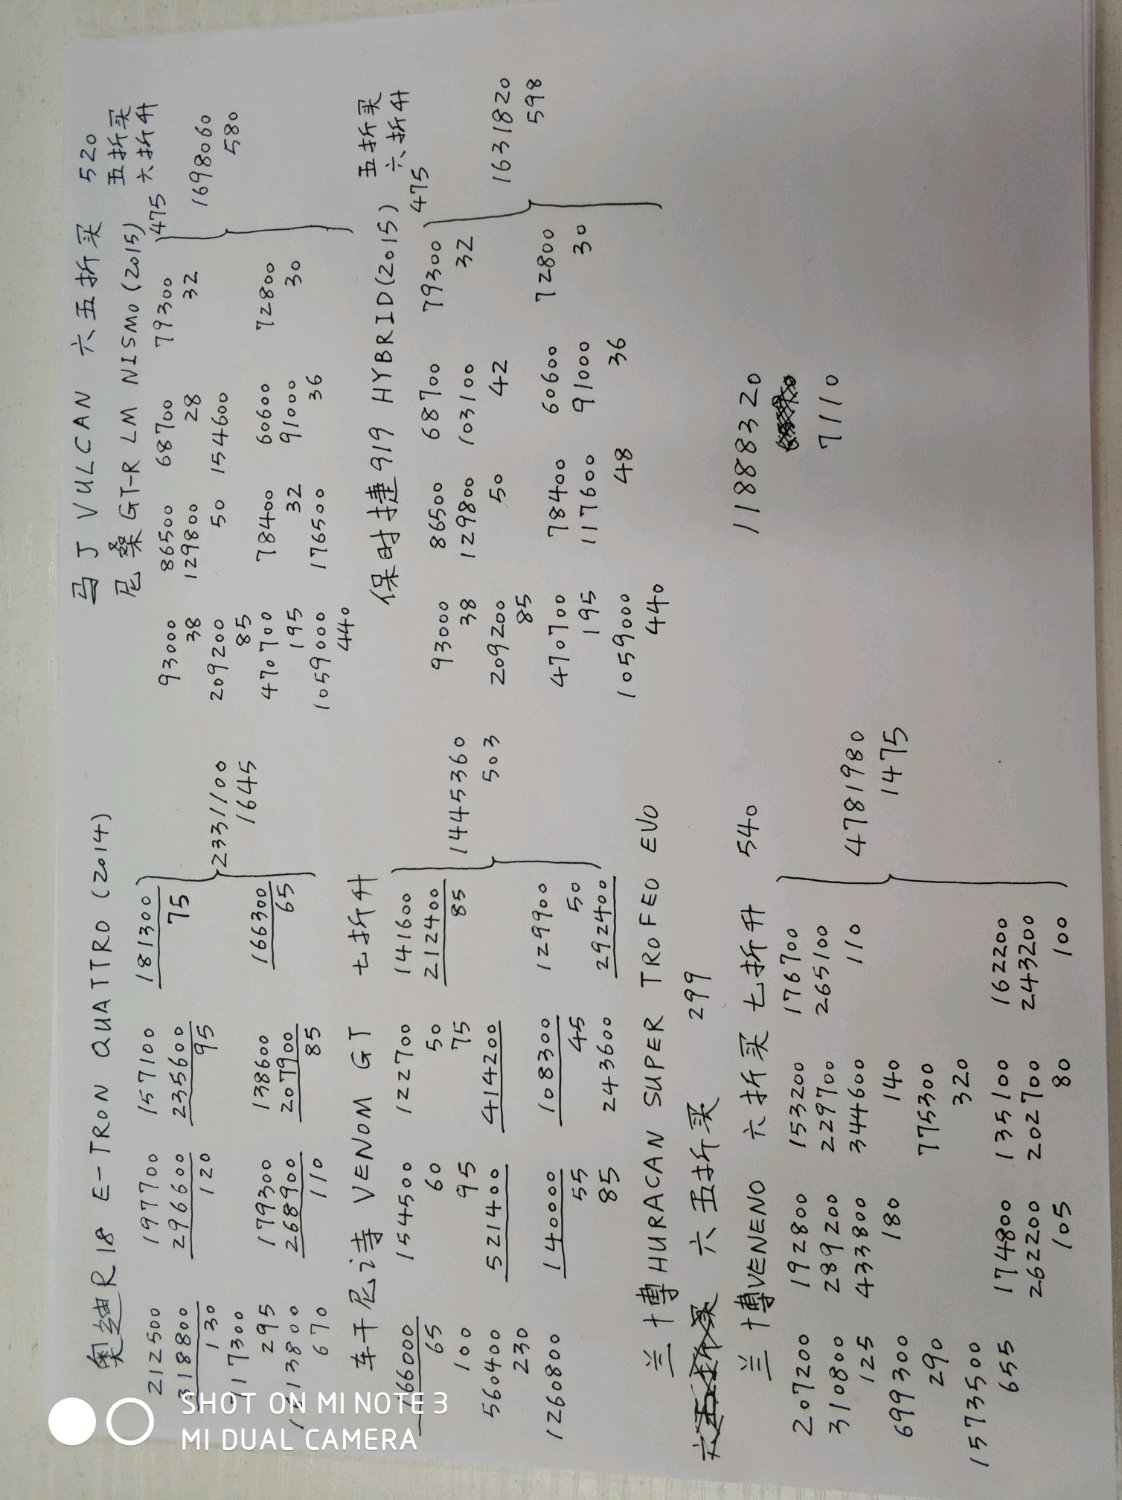 奥迪R18 E-TRON QUATTRO (2014)
212500 197700 157100 181300
318800 296600 235600 75
130 120 95
2331100
1645
295 179300 138600 166300
268900 207900 65
670 110 85
车干尼讠寺 VENOM GT 七折升
154500 122700 141600
65 60 50 212400
100 95 75 85
1445360
503
560400 521400 414200
230
1260800 140000 108300 129900
55 45 50
85 243600 292400
兰十尃HURACAN SUPER TROFEO EVO
六五折买 299
兰十尃VENENO 六折买 七折升 540
207200 192800 153200 176700
310800 289200 229700 265100
125 433800 344600 110
4781980
1475
699300 180 140
290 775300
320
1573500 174800 135100 162200
655 262200 202700 243200
105 80 100
马丁 VULCAN 六五折买 520
尼桑GT-R LM NISMO (2015) 五折买
475 六折升
93000 86500 68700 79300
38 129800 28 32
209200 50 154600
85
1698060
580
470700 78400 60600 72800
195 32 91000 30
1059000 176500 36
440
保时捷919 HYBRID(2015) 五折买
475 六折升
93000 86500 68700 79300
38 129800 103100 32
209200 50 42
85
1631820
598
470700 78400 60600 72800
195 117600 91000 30
1059000 48 36
440
11888320
7110
SHOT ON MI NOTE 3
MI DUAL CAMERA